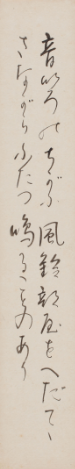 音いろのちがふ風鈴部屋をへだてゝ
さながらふたつ鳴ることのあり